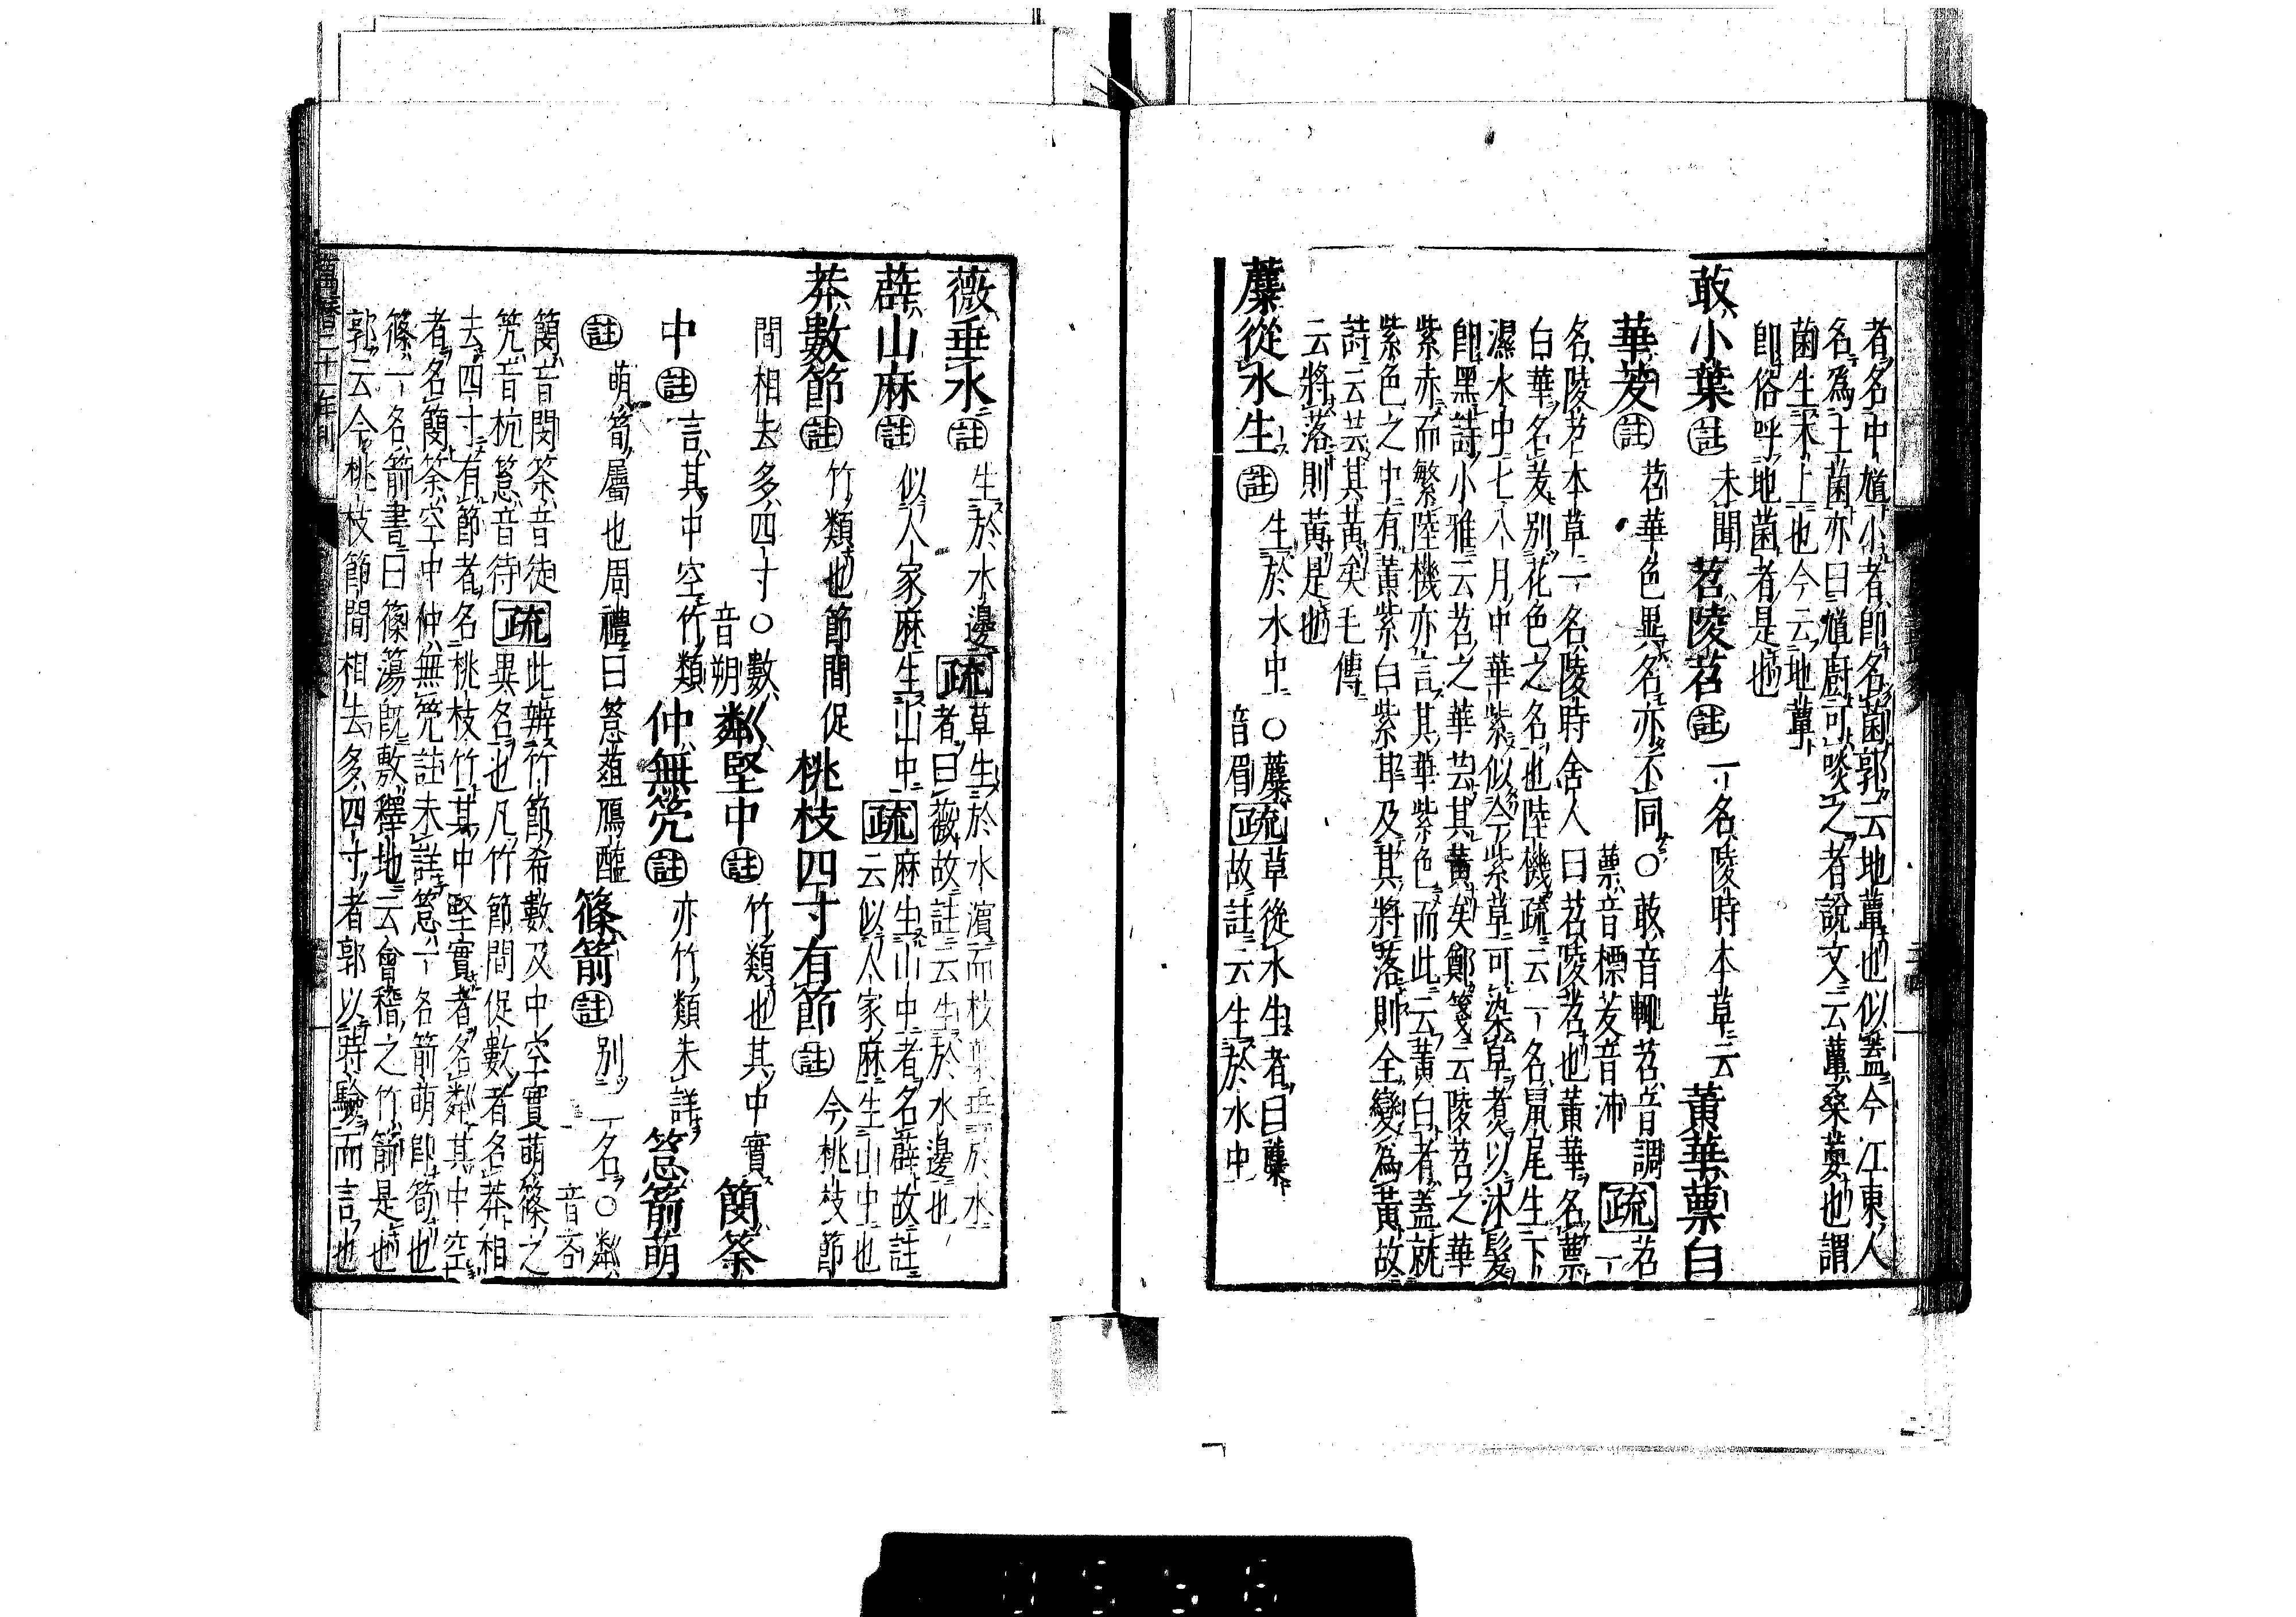 者名中馗小者即名菌郭云地蕈也似蓋今江東人
名為土菌亦曰馗廚可啖之者說文云蕈桑葽也謂
菌生木上也今云地蕈
即俗呼地菌者是也
菆小葉註未聞苕陵苕註一名陵時本草云黃華蔈白
華茇註苕華色異名亦不同○菆音輒苕音調蔈音標茇音沛疏苕一
名陵苕本草一名陵時舍人曰苕陵苕也黃華名蔈
白華名茇別花色之名也陸機疏云一名鼠尾生下
濕水中七八月中華紫似今紫草可染草煮以沐髮
即黑詩小雅云苕之華芸其黃矣鄭箋云陵苕之華
紫赤而繁陸機亦言其華紫色而此云黃白者蓋就
紫色之中有黃紫白紫耳及其將落則全變為黃故
詩云芸其黃矣毛傳
云將落則黃是也
蘪從水生註生於水中○蘪音眉疏草從水生者曰蘪故註云生於水中
薇垂水註生於水邊疏草生於水濱而枝葉垂於水者曰薇故註云生於水邊也
薜山麻註似人家麻生山中疏麻生山中者名薜故註云似人家麻生山中也
莽數節註竹類也節間促桃枝四寸有節註今桃枝節
間相去多四寸○數音朔粼堅中註竹類也其中實簢筡
中註言其中空竹類仲無笐註亦竹類未詳䈚箭萌
註萌筍屬也周禮曰䈚菹鴈醢篠箭註別二名○粼音吝
簢音閔筡音徒
笐音杭䈚音待疏此辨竹節希數及中空實萌篠之異名也凡竹節間促數者名莽相
去四寸有節者名桃枝竹其中堅實者名粼其中空
者名簢筡空中仲無笐註未詳䈚一名箭萌即筍也
篠一名箭書曰篠簜既敷釋地云會稽之竹箭是也
郭云今桃枝節間相去多四寸者郭以時驗而言也
萬曆二十一年刊